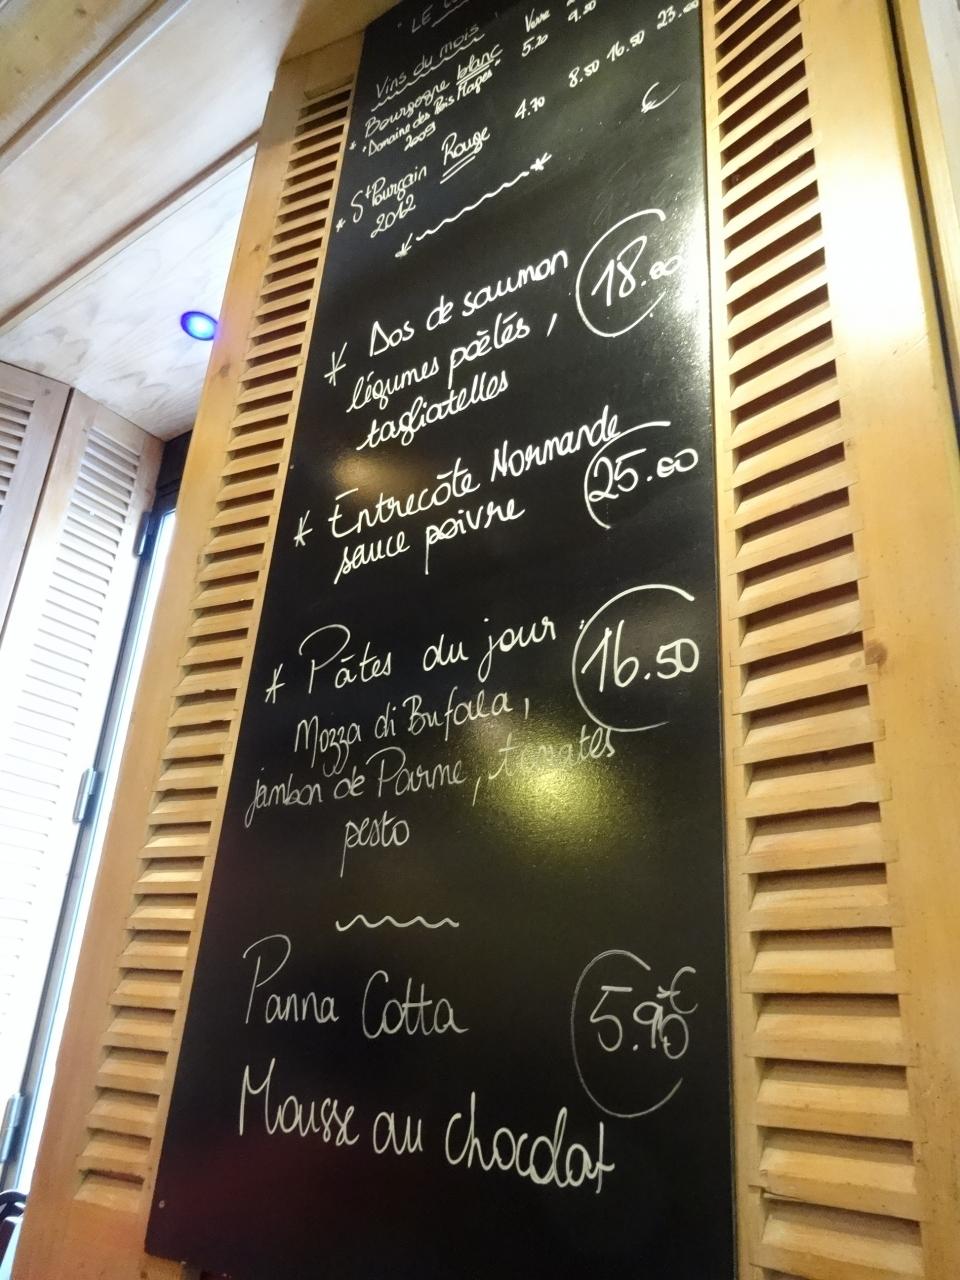 "LE
Vins du mois Verre 9.50
* Bourgogne blanc 5.20 23.00
"Domaine des
2009
* St Pourçain Rouge 4.70 8.50 16.50
2012
€
* Dos de saumon 18.00
légumes poêlés,
tagliatelles
* Entrecôte Normande 25.00
sauce poivre
* Pâtes du jour : 16.50
Mozza di Bufala,
jambon de Parme, tomates
pesto
Panna Cotta 5.90€
Mousse au chocolat